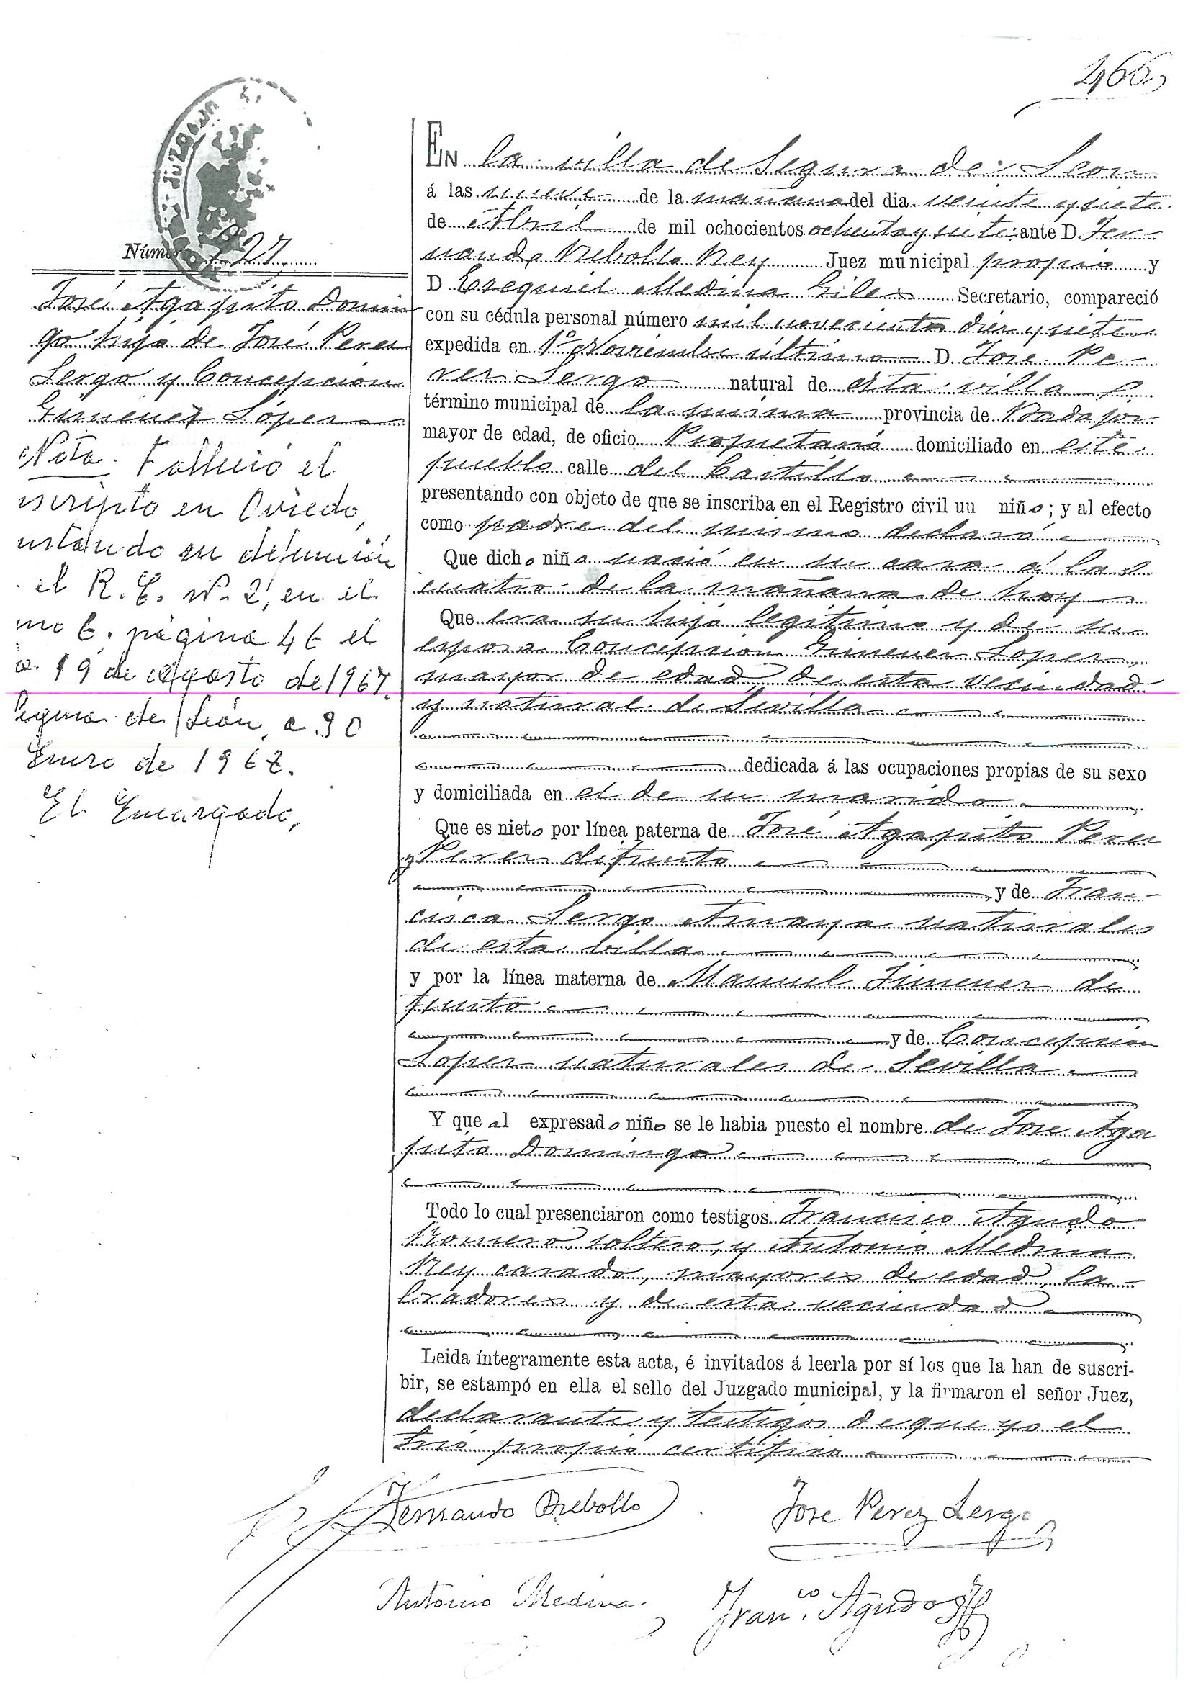 466
JUZGADO
Número 927
José Agapito Domin
go hijo de José Perez
Lergo y Concepción
Gimenez López
Nota. Falleció el
inscripto en Oviedo,
constando su defunción
el R. C. nº 2, en el
tomo 6, página 46 el
19 de Agosto de 1967.
Segura de León, a 30
Enero de 1968.
El Encargado,
EN la villa de Segura de Leon
á las nueve de la mañana del dia veinte y siete
de Abril de mil ochocientos ochenta y siete ante D. Fer-
nando Rebollo Rey Juez municipal propio y
D Ezequiel Medina Giles Secretario, compareció
con su cédula personal número mil novecientos diez y siete
expedida en 1º Noviembre último D. José Pe-
rez Lergo natural de esta villa
término municipal de la misma provincia de Badajoz
mayor de edad, de oficio Propietario domiciliado en este
pueblo calle del Castillo
presentando con objeto de que se inscriba en el Registro civil un niño; y al efecto
como padre del mismo declaró
Que dicho niño nació en su casa á las
cuatro de la mañana de hoy
Que era su hijo legitimo y de su
esposa Concepción Gimenez Lopez
mayor de edad, de esta vecindad
y natural de Sevilla
dedicada á las ocupaciones propias de su sexo
y domiciliada en el de su marido
Que es nieto por línea paterna de José Agapito Perez
y Perez difunto
y de Fran-
cisca Lergo Amaya naturales
de esta villa
y por la línea materna de Manuel Jimenez di
funto
y de Concepcion
Lopez naturales de Sevilla
Y que al expresado niño se le habia puesto el nombre de Jose Aga
pito Domingo
Todo lo cual presenciaron como testigos Francisco Agudo
Romero, soltero, y Antonio Medina
Rey casado, mayores de edad, la-
bradores y de esta vecindad
Leida íntegramente esta acta, é invitados á leerla por sí los que la han de suscri-
bir, se estampó en ella el sello del Juzgado municipal, y la firmaron el señor Juez,
declarante y testigos de que yo el
Srio propio certifico
Fernando Rebollo
Jose Perez Lergo
Antonio Medina
Fran.co Agudo